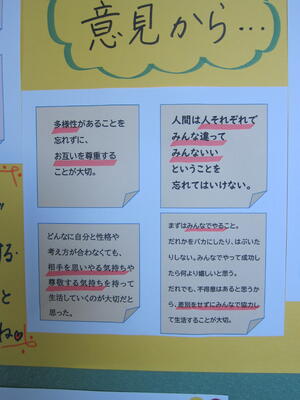 意見から…
多様性があることを
忘れずに、
お互いを尊重する
ことが大切。
人間は人それぞれで
みんな違って
みんないい
ということを
忘れてはいけない。
どんなに自分と性格や
考え方が合わなくても、
相手を思いやる気持ちや
尊敬する気持ちを持って
生活していくのが大切だと
思った。
まずはみんなでやること。
だれかをバカにしたり、はぶいた
りしない。みんなでやって成功し
たら何より嬉しいと思う。
だれでも、不得意はあると思うか
ら、差別をせずにみんなで協力し
て生活することが大切。
する・
と
ね